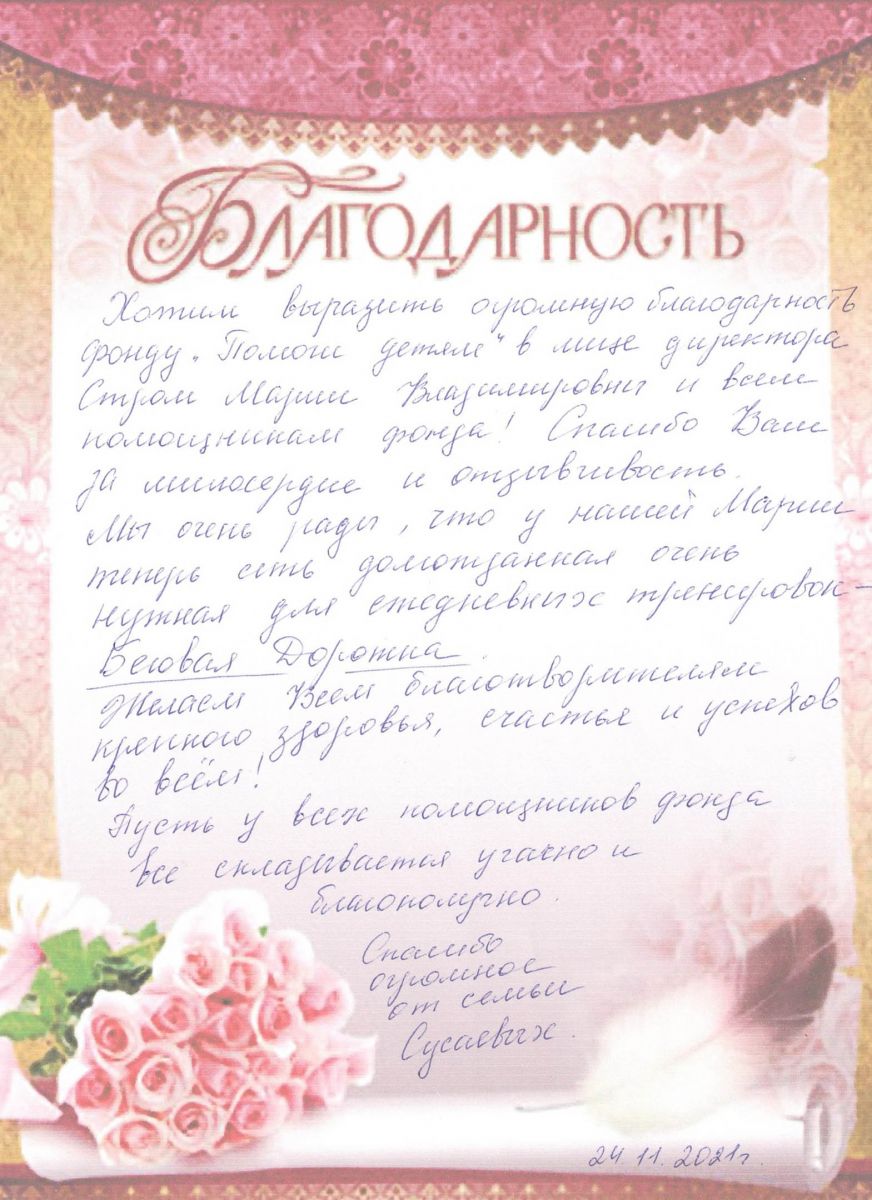 БЛАГОДАРНОСТЬ
Хотим выразить огромную благодарность
фонду „Помоги детям" в лице директора
Стром Марии Владимировны и всем
помощникам фонда! Спасибо Вам
за милосердие и отзывчивость.
Мы очень рады, что у нашей Марии
теперь есть долгожданная очень
нужная для ежедневных тренировок –
Беговая Дорожка.
Желаем Всем благотворителям
крепкого здоровья, счастья и успехов
во всём!
Пусть у всех помощников фонда
все складывается удачно и
благополучно.
Спасибо
огромное
от семьи
Сусаевых.
24.11.2021г.